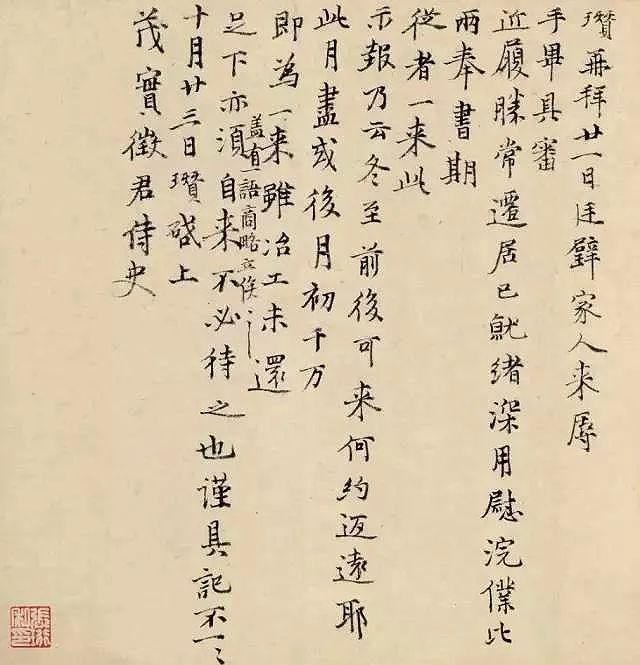 瓚再拜廿一日廷璧家人来辱
手畢具審
近履勝常遷居已就緒深用慰浣僕比
兩奉書期
從者一来此
示報乃云冬至前後可来何約迂遠耶
此月盡或後月初千万
即為一来雖冶工未還
盖有一語商略立俟之
足下亦須自来不必待之也謹具記不一〻
十月廿三日瓚啟上
茂實徵君侍史
張珩私印